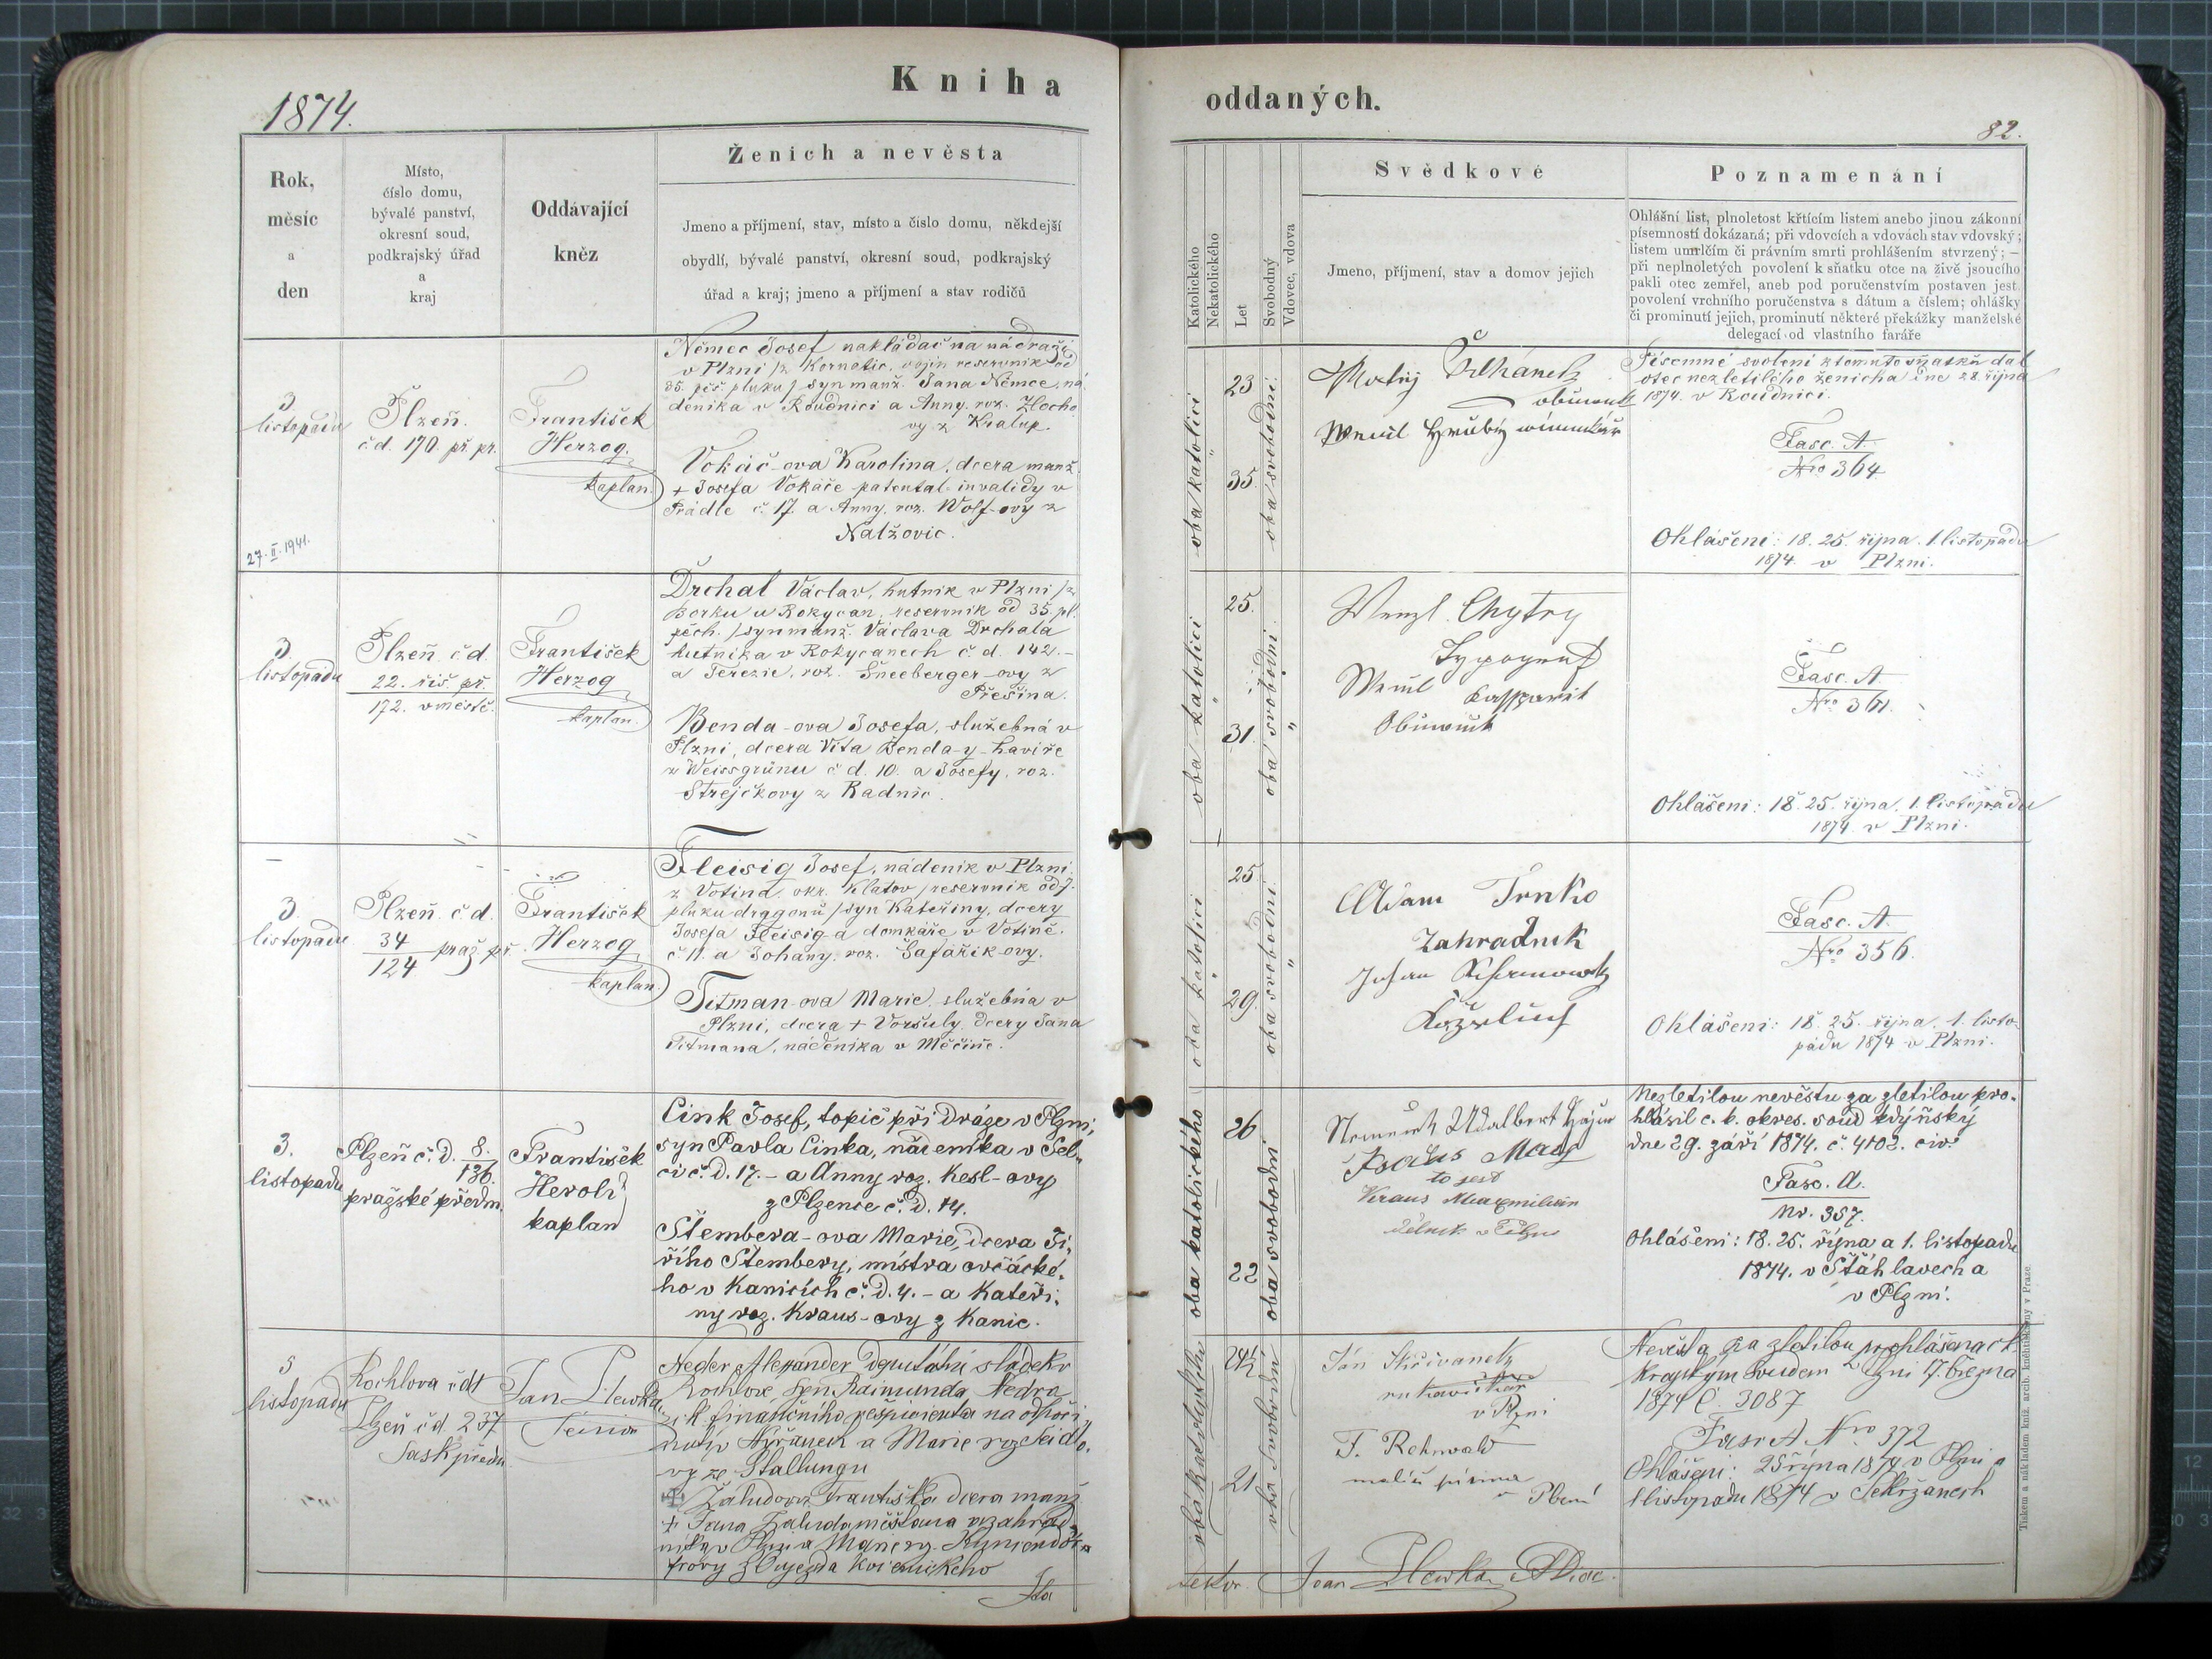 Kniha
oddaných.
1874.
82.
Rok,
měsíc
a
den
Místo,
číslo domu,
bývalé panství,
okresní soud,
podkrajský úřad
a
kraj
Oddávající
kněz
Ženich a nevěsta
Jmeno a příjmení, stav, místo a číslo domu, někdejší
obydlí, bývalé panství, okresní soud, podkrajský
úřad a kraj; jmeno a příjmení a stav rodičů
Katolického
Nekatolického
Let
Svobodný
Vdovec, vdova
Svědkové
Jmeno, příjmení, stav a domov jejich
Poznamenání
Ohlášní list, plnoletost křtícím listem anebo jinou zákonní
písemností dokázaná; při vdovcích a vdovách stav vdovský;
listem umrlčím či právním smrti prohlášením stvrzený; —
při neplnoletých povolení k sňatku otce na živě jsoucího
pakli otec zemřel, aneb pod poručenstvím postaven jest
povolení vrchního poručenstva s dátum a číslem; ohlášky
či prominutí jejich, prominutí některé překážky manželské
delegací od vlastního faráře
3
listopadu
27. II. 1941.
Plzeň.
čd. 170. př. pr.
František
Herzog.
kaplan.
Němec Josef nakládač na nádraží
v Plzni /z Kornatic, vojín reservník od
35. pěš. pluku / syn manž. Jana Němce, ná
deníka v Roudnici a Anny, roz. Zlocho
vy z Kralup.
Vokáč-ova Karolina, dcera manž.
+ Josefa Vokáče patental. invalidy v
Prádle č. 17. a Anny, roz. Wolf-ovy z
Nalžovic.
oba katolíci
23
35.
oba svobodni
Matěj
obuvník
Písemné svolení k tomuto sňatku dal
otec nezletilého ženicha dne 28. října
1874. v Roudnici.
Fasc. A.
Nro 364
Ohlášení: 18. 25. října. 1. listopadu
1874. v Plzni.
3.
listopadu
Plzeň č.d.
22. řiš. př.
172. v městě.
František
Herzog
kaplan.
Drchal Václav, hutník v Plzni /z
Borku u Rokycan, reservník od 35. pl.
pěch. / syn manž. Václava Drchala
hutníka v Rokycanech č. d. 142.-
a Terezie, roz. Šneeberger-ovy z
Přešina.
Benda-ova Josefa, služebná v
Plzni, dcera Víta Benda-y havíře
z Weissgrünu č d. 10. a Josefy, roz.
Strejčkovy z Radnic.
oba katolíci
25.
31.
oba svobodni
Wenzl. Chytry
Typograf
Obuwnik
Fasc. A.
Nro 361.
Ohlášeni: 18. 25. října, 1. listopadu
1874. v Plzni.
3.
listopadu
Plzeň č.d.
34
124 praž. př.
František
Herzog
kaplan.
Fleisig Josef, nádeník v Plzni
z Votina, okr. Klatov / reservník od 7.
pluku dragonů / syn Kateřiny, dcery
Josefa Fleisig-a domkáře v Votíně.
č. 11. a Johany, roz. Šafařík-ovy.
Titman-ova Marie, služebná v
Plzni, dcera + Voršuly, dcery Jana
Titmana, nádeníka v Měčíně.
oba katolíci
25
29.
oba svobodni
Adam Trnko
Zahradnik
Fasc. A.
Nro 356.
Ohlášeni: 18. 25. října, 1. listo-
padu 1874 v Plzni.
3.
listopadu
Plzeň č. D. 8.
136.
pražské předm.
František
Herold
kaplan
Cink Josef, topič při Dráze v Plzni,
syn Pavla Cinka, nádeníka v Sel-
ci č. D. 17. - a Anny roz. Kesl-ovy
z Plzence č. D. 14.
Štembera-ova Marie, dcera Ji-
řího Štembery, místra ovčácké-
ho v Kanicích č. D. 4. - a Kateři-
ny roz. Kraus-ovy z Kanic.
oba katolického
26
22
oba svobodni
to jest
Kraus Maxmilián
dělník v Plzni
Nezletilou nevěstu za zletilou pro-
hlásil c. k. okres. soud kdýňský
dne 29. září 1874. č. 4102. civ.
Fasc. A.
Nr. 357.
Ohlášeni: 18. 25. října a 1. listopadu
1874. v Šťáhlavech a
v Plzni.
5
listopadu
Rochlova čd 1
Plzeň č d 237
Sask předm
Jan Plewka
Neder Alexander Deputátní sládek v
Rochlově syn Raimunda Nedra
c. k. finančního respicienta na odpoči-
nutí v Nýřanech a Marie roz Seidlo-
vy ze Stallungu
Žáludova Františka dcera manž
+ Jana Žaluda měšťana a zahrad-
níka v Plzni a
z Oujezda
oba katolického
24½
21
oba svobodni
Jan Skřivanek
rukavičkar
v Plzni
F. Rehnwald
malíř písma
v Plzni
Nevěsta za zletilou prohlášena c k
krajským soudem v Plzni 17. března
1874 č. 3087
Fasc A Nro 372
Ohlášeni: 25 října 1874 v Plzni a
1 listopadu 1874 v
Jan Plewka
Tiskem a nákladem kníž. arcib. knihtiskárny v Praze.